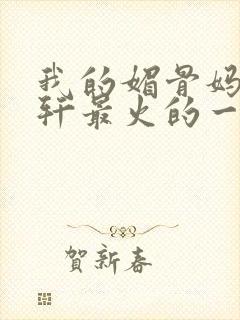 我的媚骨妈
轩最火的一
賀新春